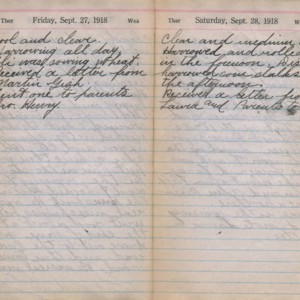 Ther Friday, Sept. 27, 1918 Wea
ool and clear.
arrowing all day.
west sowing wheat.
eceived a letter from
Martin
one to parents
ro. Henry.
Ther Saturday, Sept. 28, 1918 Wea
Clear and medium
Harrowed and rolled
in the forenoon.
harrowed corn stalk
the afternoon.
Received a letter fro
and Parents to